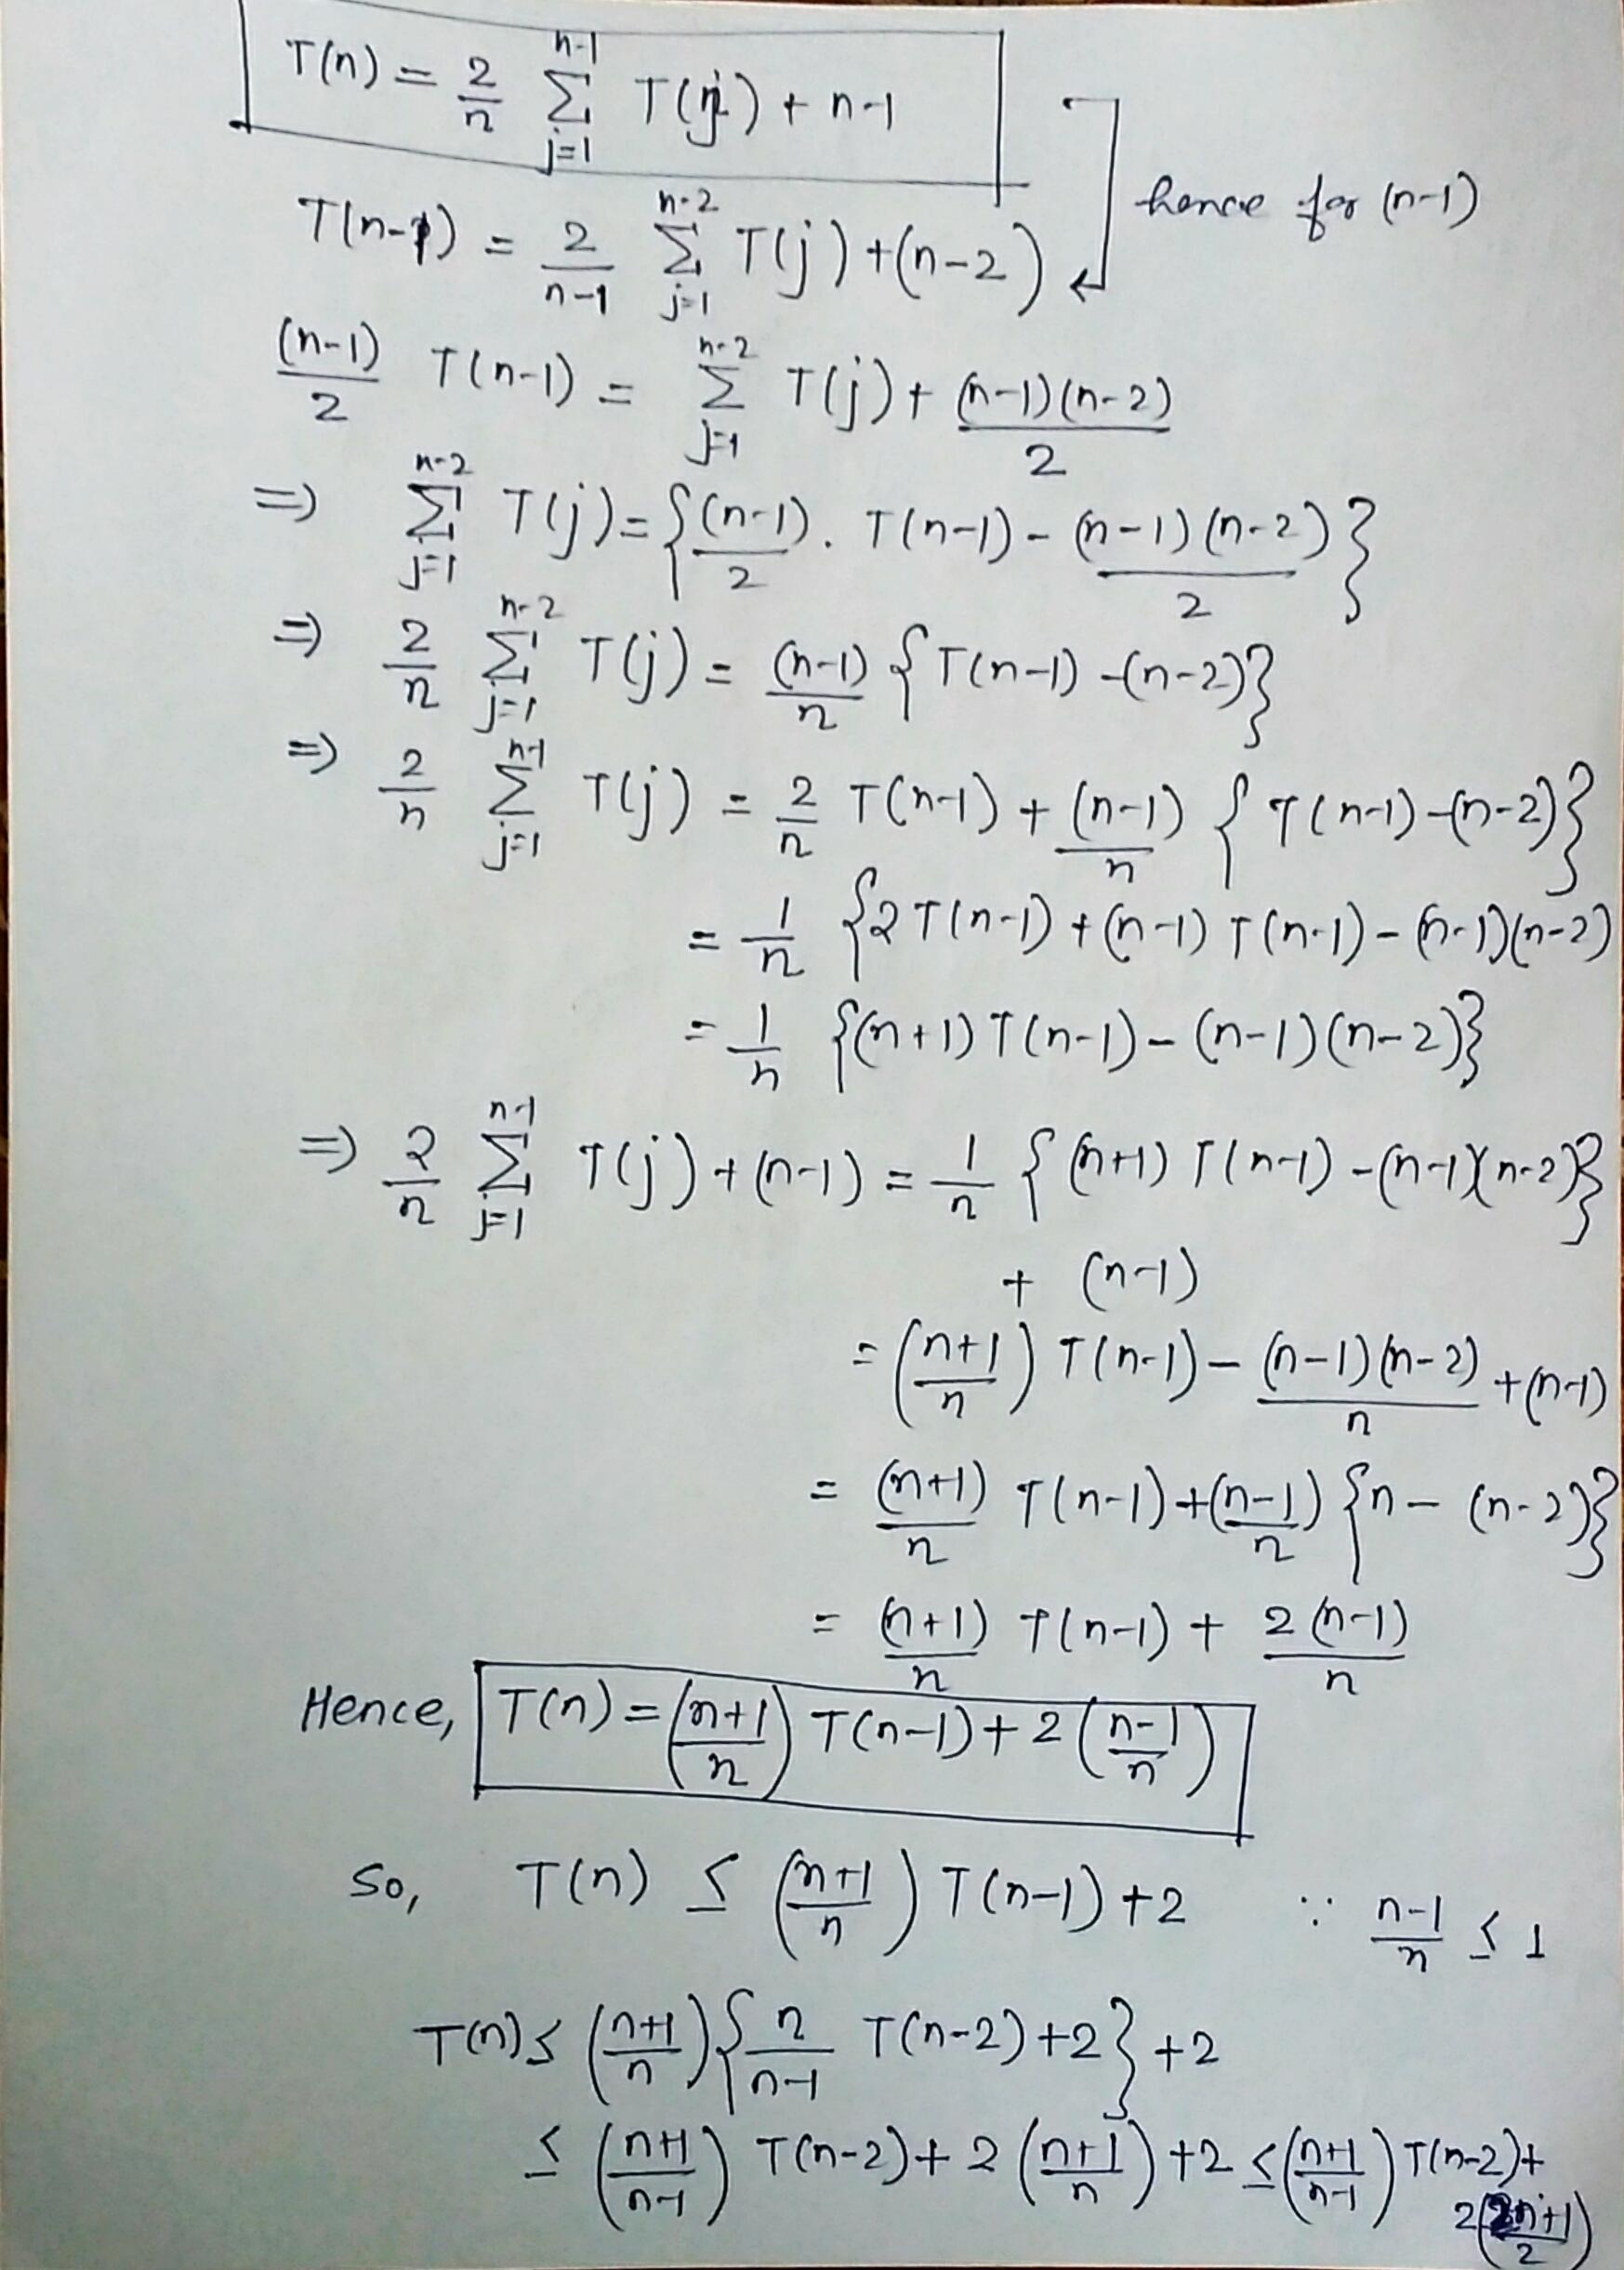 T(n) = 2/n ∑_{j=1}^{n-1} T(j) + n-1
hence for (n-1)
T(n-1) = 2/(n-1) ∑_{j=1}^{n-2} T(j) + (n-2)
(n-1)/2 T(n-1) = ∑_{j=1}^{n-2} T(j) + (n-1)(n-2)/2
⇒ ∑_{j=1}^{n-2} T(j) = {(n-1)/2 . T(n-1) - (n-1)(n-2)/2}
⇒ 2/n ∑_{j=1}^{n-2} T(j) = (n-1)/n {T(n-1) -(n-2)}
⇒ 2/n ∑_{j=1}^{n-1} T(j) = 2/n T(n-1) + (n-1)/n {T(n-1) -(n-2)}
= 1/n {2T(n-1) + (n-1) T(n-1) - (n-1)(n-2)
= 1/n {(n+1) T(n-1) - (n-1)(n-2)}
⇒ 2/n ∑_{j=1}^{n-1} T(j) + (n-1) = 1/n {(n+1) T(n-1) -(n-1)(n-2)}
+ (n-1)
= ((n+1)/n) T(n-1) - (n-1)(n-2)/n + (n-1)
= (n+1)/n T(n-1) + ((n-1)/n) {n - (n-2)}
= (n+1)/n T(n-1) + 2(n-1)/n
Hence, T(n) = ((n+1)/n) T(n-1) + 2((n-1)/n)
So, T(n) ≤ ((n+1)/n) T(n-1) + 2 ∵ (n-1)/n ≤ 1
T(n) ≤ ((n+1)/n) {n/(n-1) T(n-2) + 2} + 2
≤ ((n+1)/(n-1)) T(n-2) + 2((n+1)/n) + 2 ≤ ((n+1)/(n-1)) T(n-2) +
2((2n+1)/2)